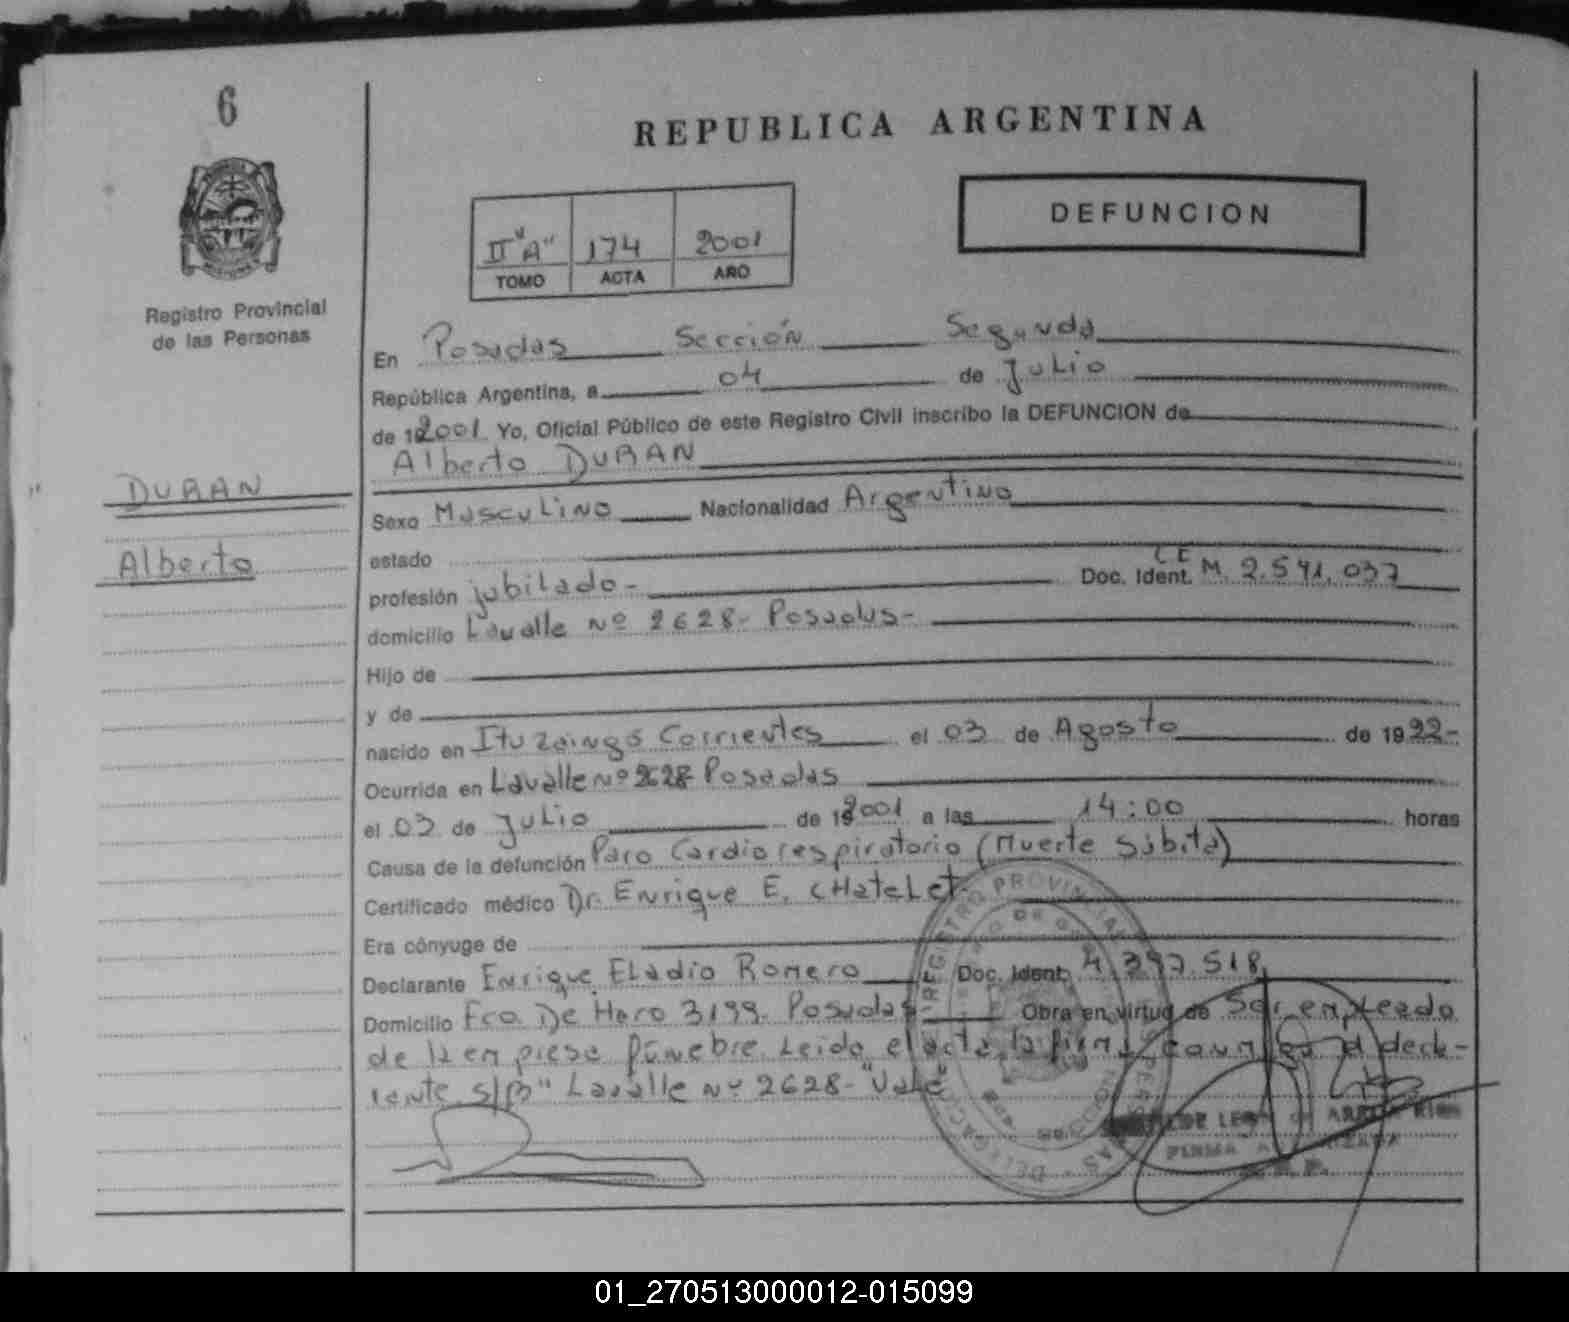 6
REPUBLICA ARGENTINA
DEFUNCION
II "A" 174 2001
TOMO ACTA AÑO
Registro Provincial
de las Personas
DURAN
Alberto
En Posadas Sección Segunda
República Argentina, a 04 de Julio
de 2001 Yo, Oficial Público de este Registro Civil inscribo la DEFUNCION de
Alberto DURAN
Sexo Masculino Nacionalidad Argentino
estado
profesión jubilado- Doc. Ident. L E M. 2.541.037
domicilio Lavalle Nº 2628- Posadas-
Hijo de
y de
nacido en Ituzaingó Corrientes el 03 de Agosto de 1922-
Ocurrida en Lavalle Nº 2628 Posadas
el 03 de Julio de 2001 a las 14:00 horas
Causa de la defunción Paro Cardiorespiratorio (Muerte Súbita)
Certificado médico Dr. Enrique E. CHateLet
Era cónyuge de
Declarante Enrique Eladio Romero Doc. Ident. 4.397.518
Domicilio Fco. De Haro 3199- Posadas- Obra en virtud de Ser empleado
de la empresa fúnebre. Leida el acta, la firma conmigo el decla-
rante. s/B" Lavalle Nº 2628-"Vale
REGISTRO PROVINCIAL
DELEGACION
FIRMA
01_270513000012-015099